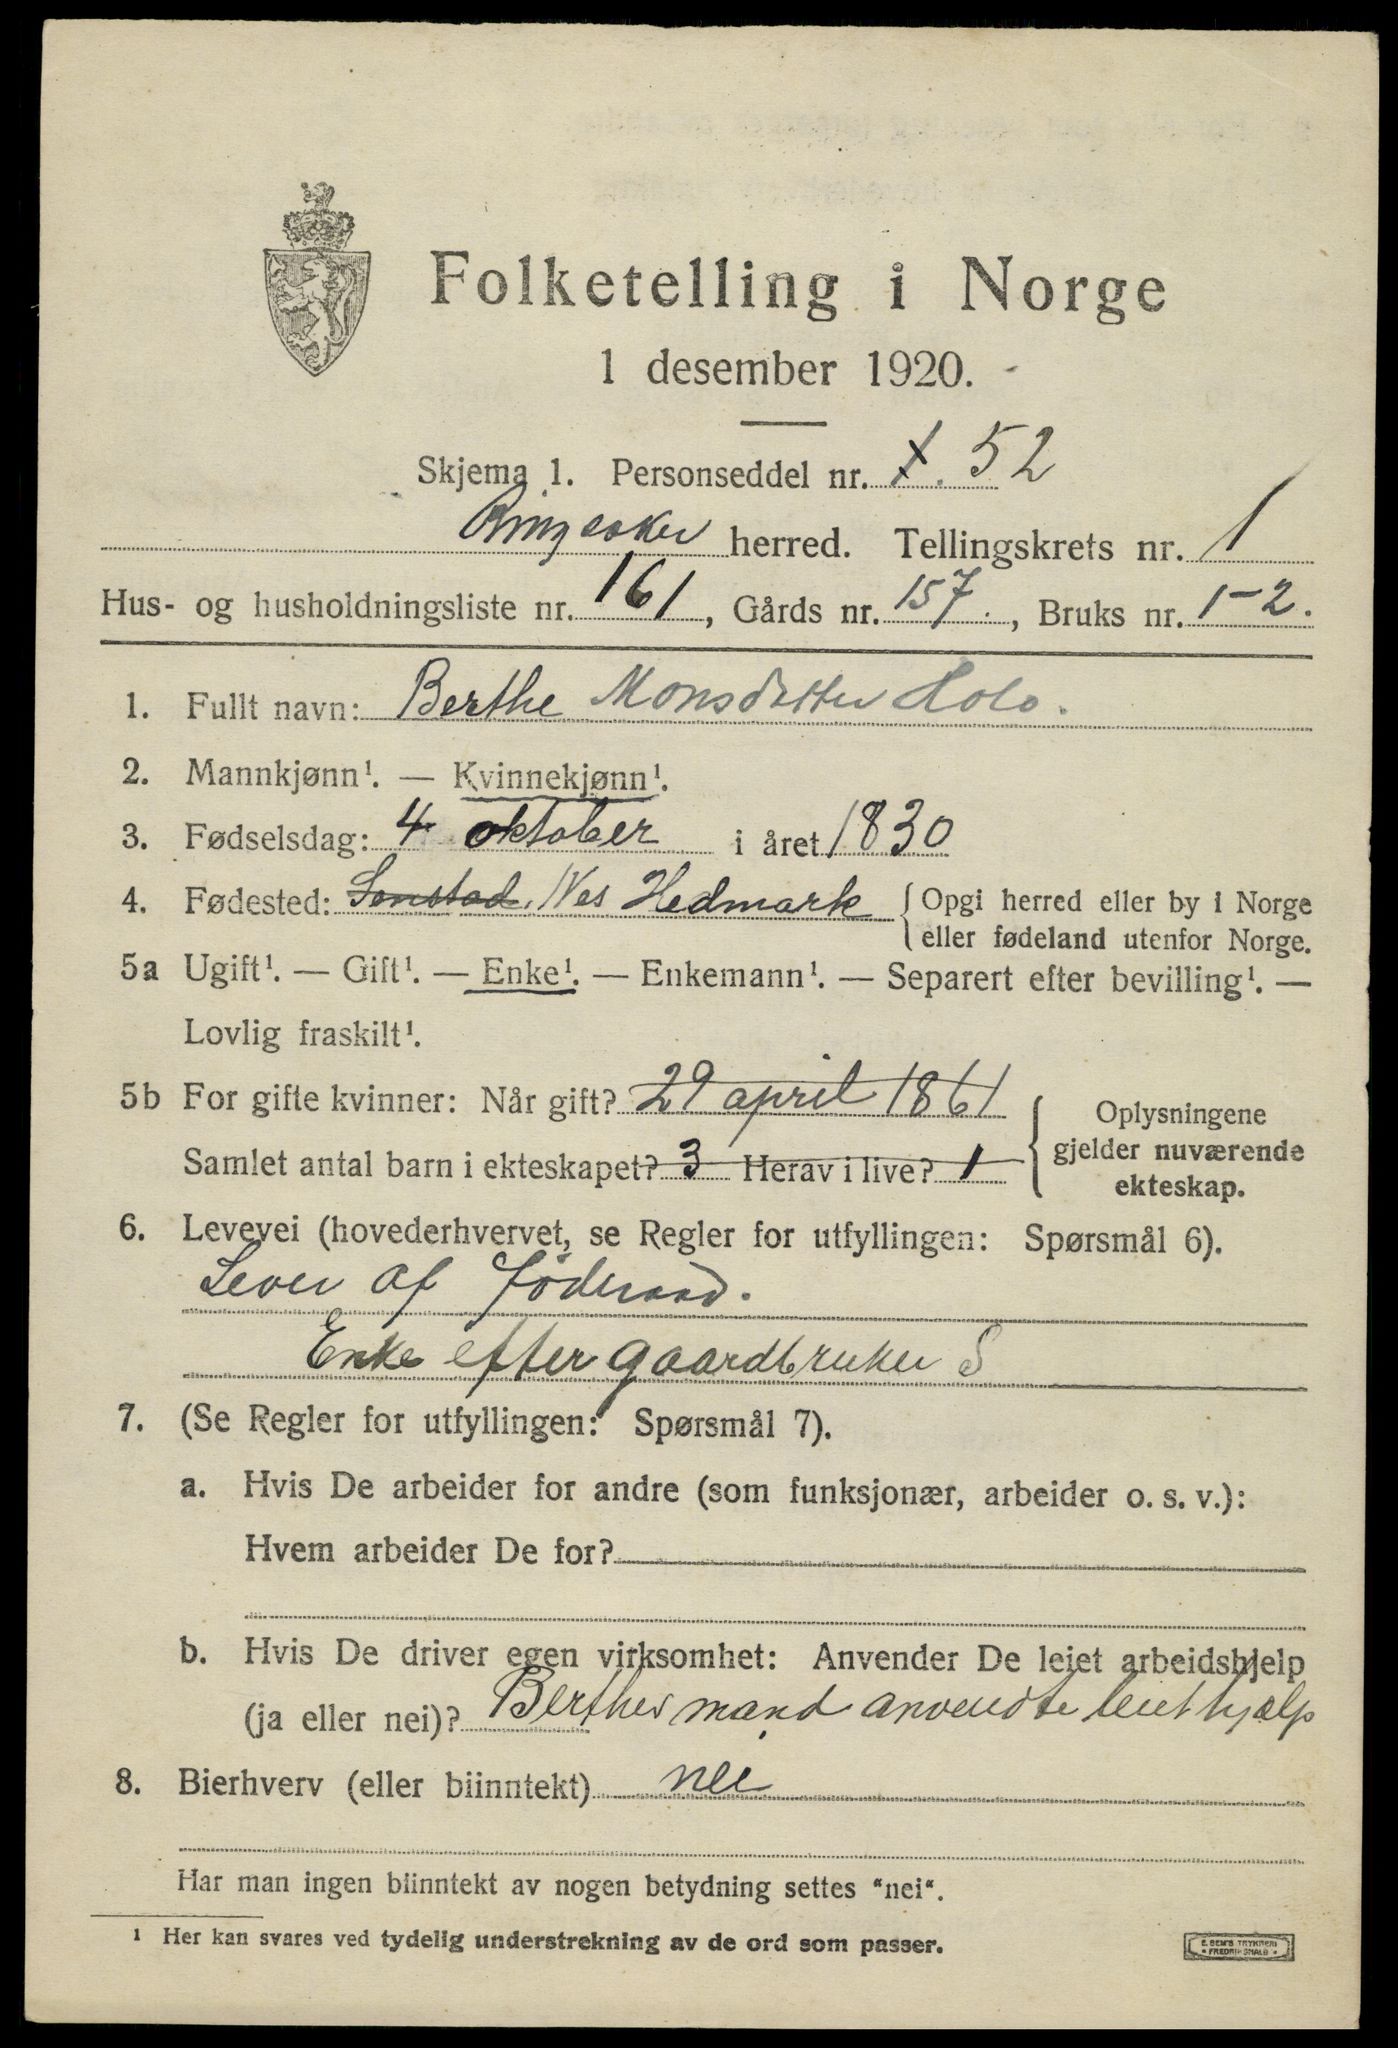 Folketelling i Norge
1 desember 1920.
Skjema 1. Personseddel nr. 1. 52
Ringsaker herred. Tellingskrets nr. 1
Hus- og husholdningsliste nr. 161, Gårds nr. 157., Bruks nr. 1-2.
1. Fullt navn: Berthe Monsdatter Holo.
2. Mannkjønn¹. — Kvinnekjønn¹.
3. Fødselsdag: 4 oktober i året 1830
4. Fødested: Sonstad, Nes Hedmark { Opgi herred eller by i Norge
eller fødeland utenfor Norge.
5a Ugift¹. — Gift¹. — Enke¹. — Enkemann¹. — Separert efter bevilling¹. —
Lovlig fraskilt¹.
5b For gifte kvinner: Når gift? 29 april 1861
Samlet antal barn i ekteskapet? 3 Herav i live? 1
{ Oplysningene
gjelder nuværende
ekteskap.
6. Levevei (hovederhvervet, se Regler for utfyllingen: Spørsmål 6).
Lever af føderaad.
Enke efter gaardbruker S
7. (Se Regler for utfyllingen: Spørsmål 7).
a. Hvis De arbeider for andre (som funksjonær, arbeider o. s. v.):
Hvem arbeider De for?
b. Hvis De driver egen virksomhet: Anvender De leiet arbeidshjelp
(ja eller nei)? Berthes mand anvendte leiet hjælp
8. Bierhverv (eller biinntekt) nei
Har man ingen biinntekt av nogen betydning settes "nei".
¹ Her kan svares ved tydelig understrekning av de ord som passer.
E. SEM'S TRYKKERI
• FREDRIKSHALD •